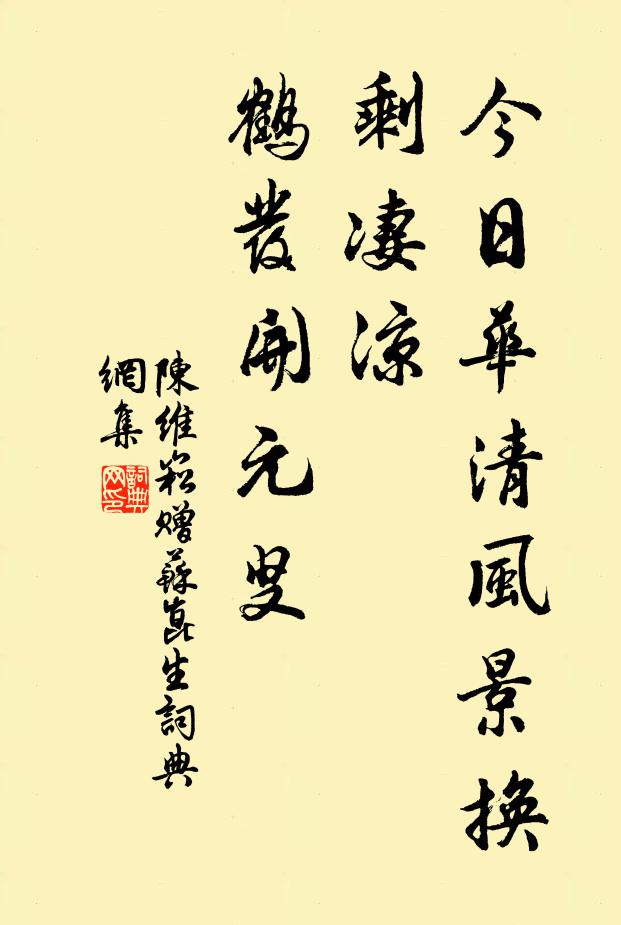 今日華清風景換
剩凄凉
鶴發開元叟
陳維崧贈蘇崑生詞典
網集
詞典
网印